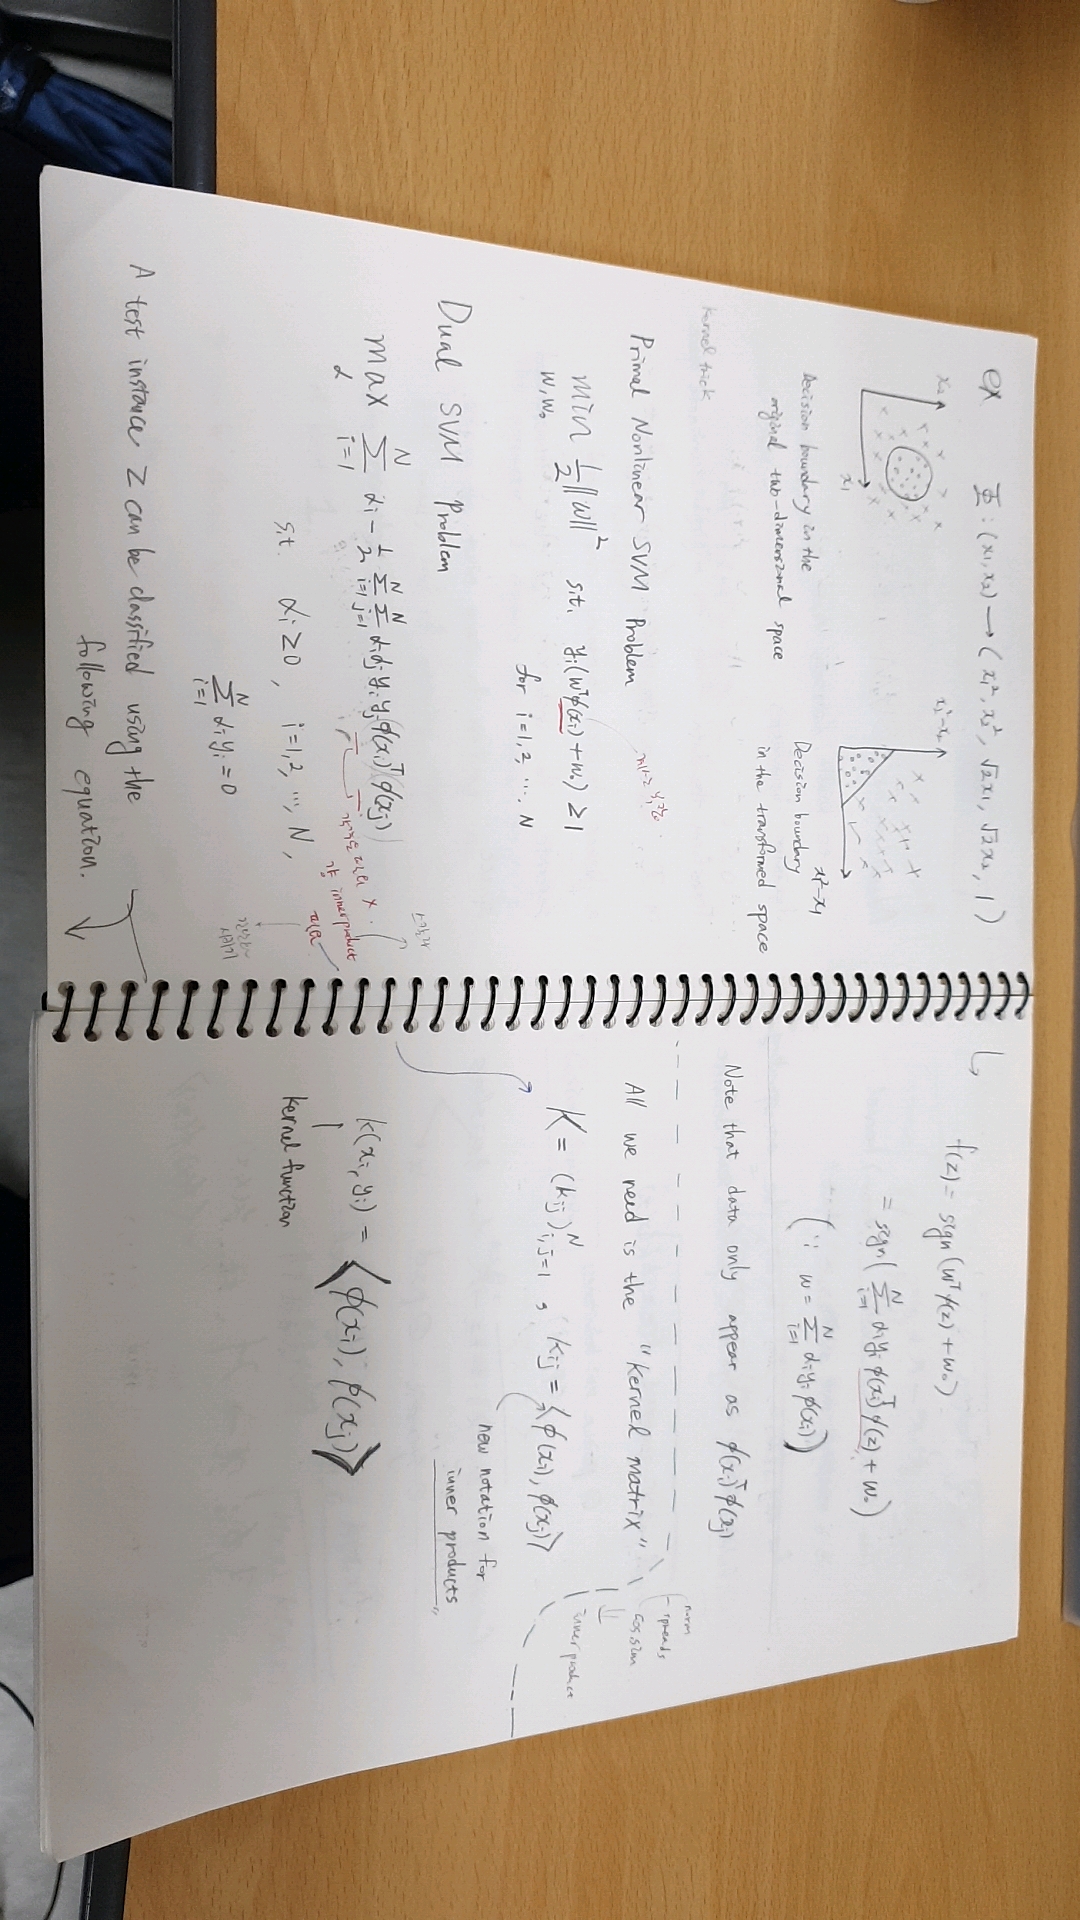 ex Φ : (x1, x2) → ( x1², x2², √2x1, √2x2, 1 )
x2
x1
x2²-x2
x1²-x1
Decision boundary in the
original two-dimensional space
Decision boundary
in the transformed space
kernel trick
Primal Nonlinear SVM Problem
min 1/2 ||w||² s.t. yi(wᵀφ(xi) + w0) ≥ 1
w, w0
for i=1,2, ..., N
Dual SVM Problem
스칼라
max Σ_{i=1}^{N} αi - 1/2 Σ_{i=1}^{N} Σ_{j=1}^{N} αi αj yi yj φ(xi)ᵀ φ(xj)
α
필요 X
걍 inner product
필요
s.t. αi ≥ 0, i=1,2, ..., N,
Σ_{i=1}^{N} αi yi = 0
시키기
A test instance z can be classified using the
following equation.
f(z) = sign(wᵀφ(z) + w0)
= sign( Σ_{i=1}^{N} αi yi φ(xi)ᵀ φ(z) + w0 )
( ∵ w = Σ_{i=1}^{N} αi yi φ(xi) )
Note that data only appear as φ(xi)ᵀφ(xj)
norm
spreads
cos sim
⇓
inner product
All we need is the "kernel matrix"
K = (kij)_{i,j=1}^{N}, kij = ⟨φ(xi), φ(xj)⟩
new notation for
inner products
k(xi, yi) = ⟨φ(xi), φ(xj)⟩
kernel function